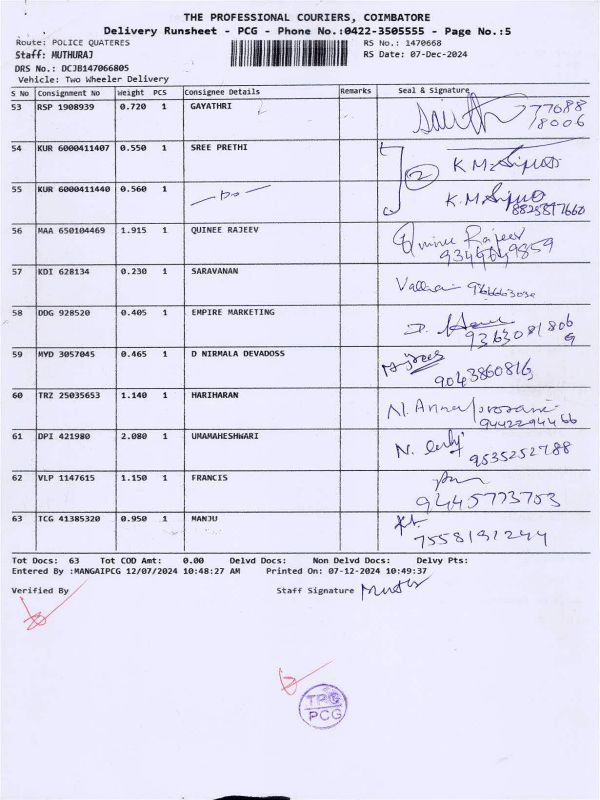 THE PROFESSIONAL COURIERS, COIMBATORE
Delivery Runsheet - PCG - Phone No.:0422-3505555 - Page No.:5
Route: POLICE QUATERES RS No.: 1470668
Staff: MUTHURAJ RS Date: 07-Dec-2024
DRS No.: DCJB147066805
Vehicle: Two Wheeler Delivery
S No Consignment No Weight PCS Consignee Details Remarks Seal & Signature
53 RSP 1908939 0.720 1 GAYATHRI 77688
18006
54 KUR 6000411407 0.550 1 SREE PRETHI 2 K.M.
55 KUR 6000411440 0.560 1 -Do- K.M.
56 MAA 650104469 1.915 1 QUINEE RAJEEV Quinee Rajeev
57 KDI 628134 0.230 1 SARAVANAN
58 DDG 928520 0.405 1 EMPIRE MARKETING D.
59 MYD 3057045 0.465 1 D NIRMALA DEVADOSS
9043860816
60 TRZ 25035653 1.140 1 HARIHARAN N.
9442294466
61 DPI 421980 2.080 1 UMAMAHESHWARI N.
9535252788
62 VLP 1147615 1.150 1 FRANCIS
9445773753
63 TCG 41385320 0.950 1 MANJU
7558191244
Tot Docs: 63 Tot COD Amt: 0.00 Delvd Docs: Non Delvd Docs: Delvy Pts:
Entered By :MANGAIPCG 12/07/2024 10:48:27 AM Printed On: 07-12-2024 10:49:37
Verified By Staff Signature
TPC
PCG